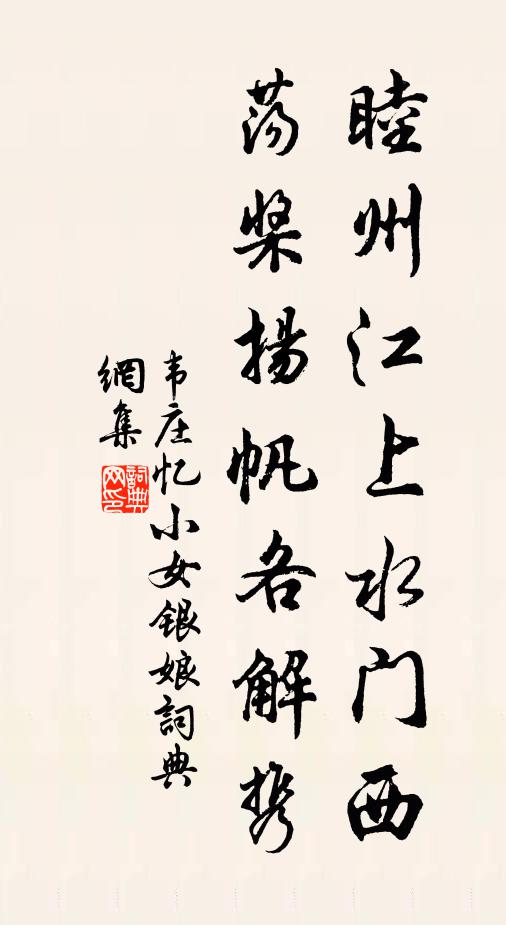 睦州江上水门西
荡桨揚帆各解携
韦庄忆小女银娘詞典
網集
詞典
网印